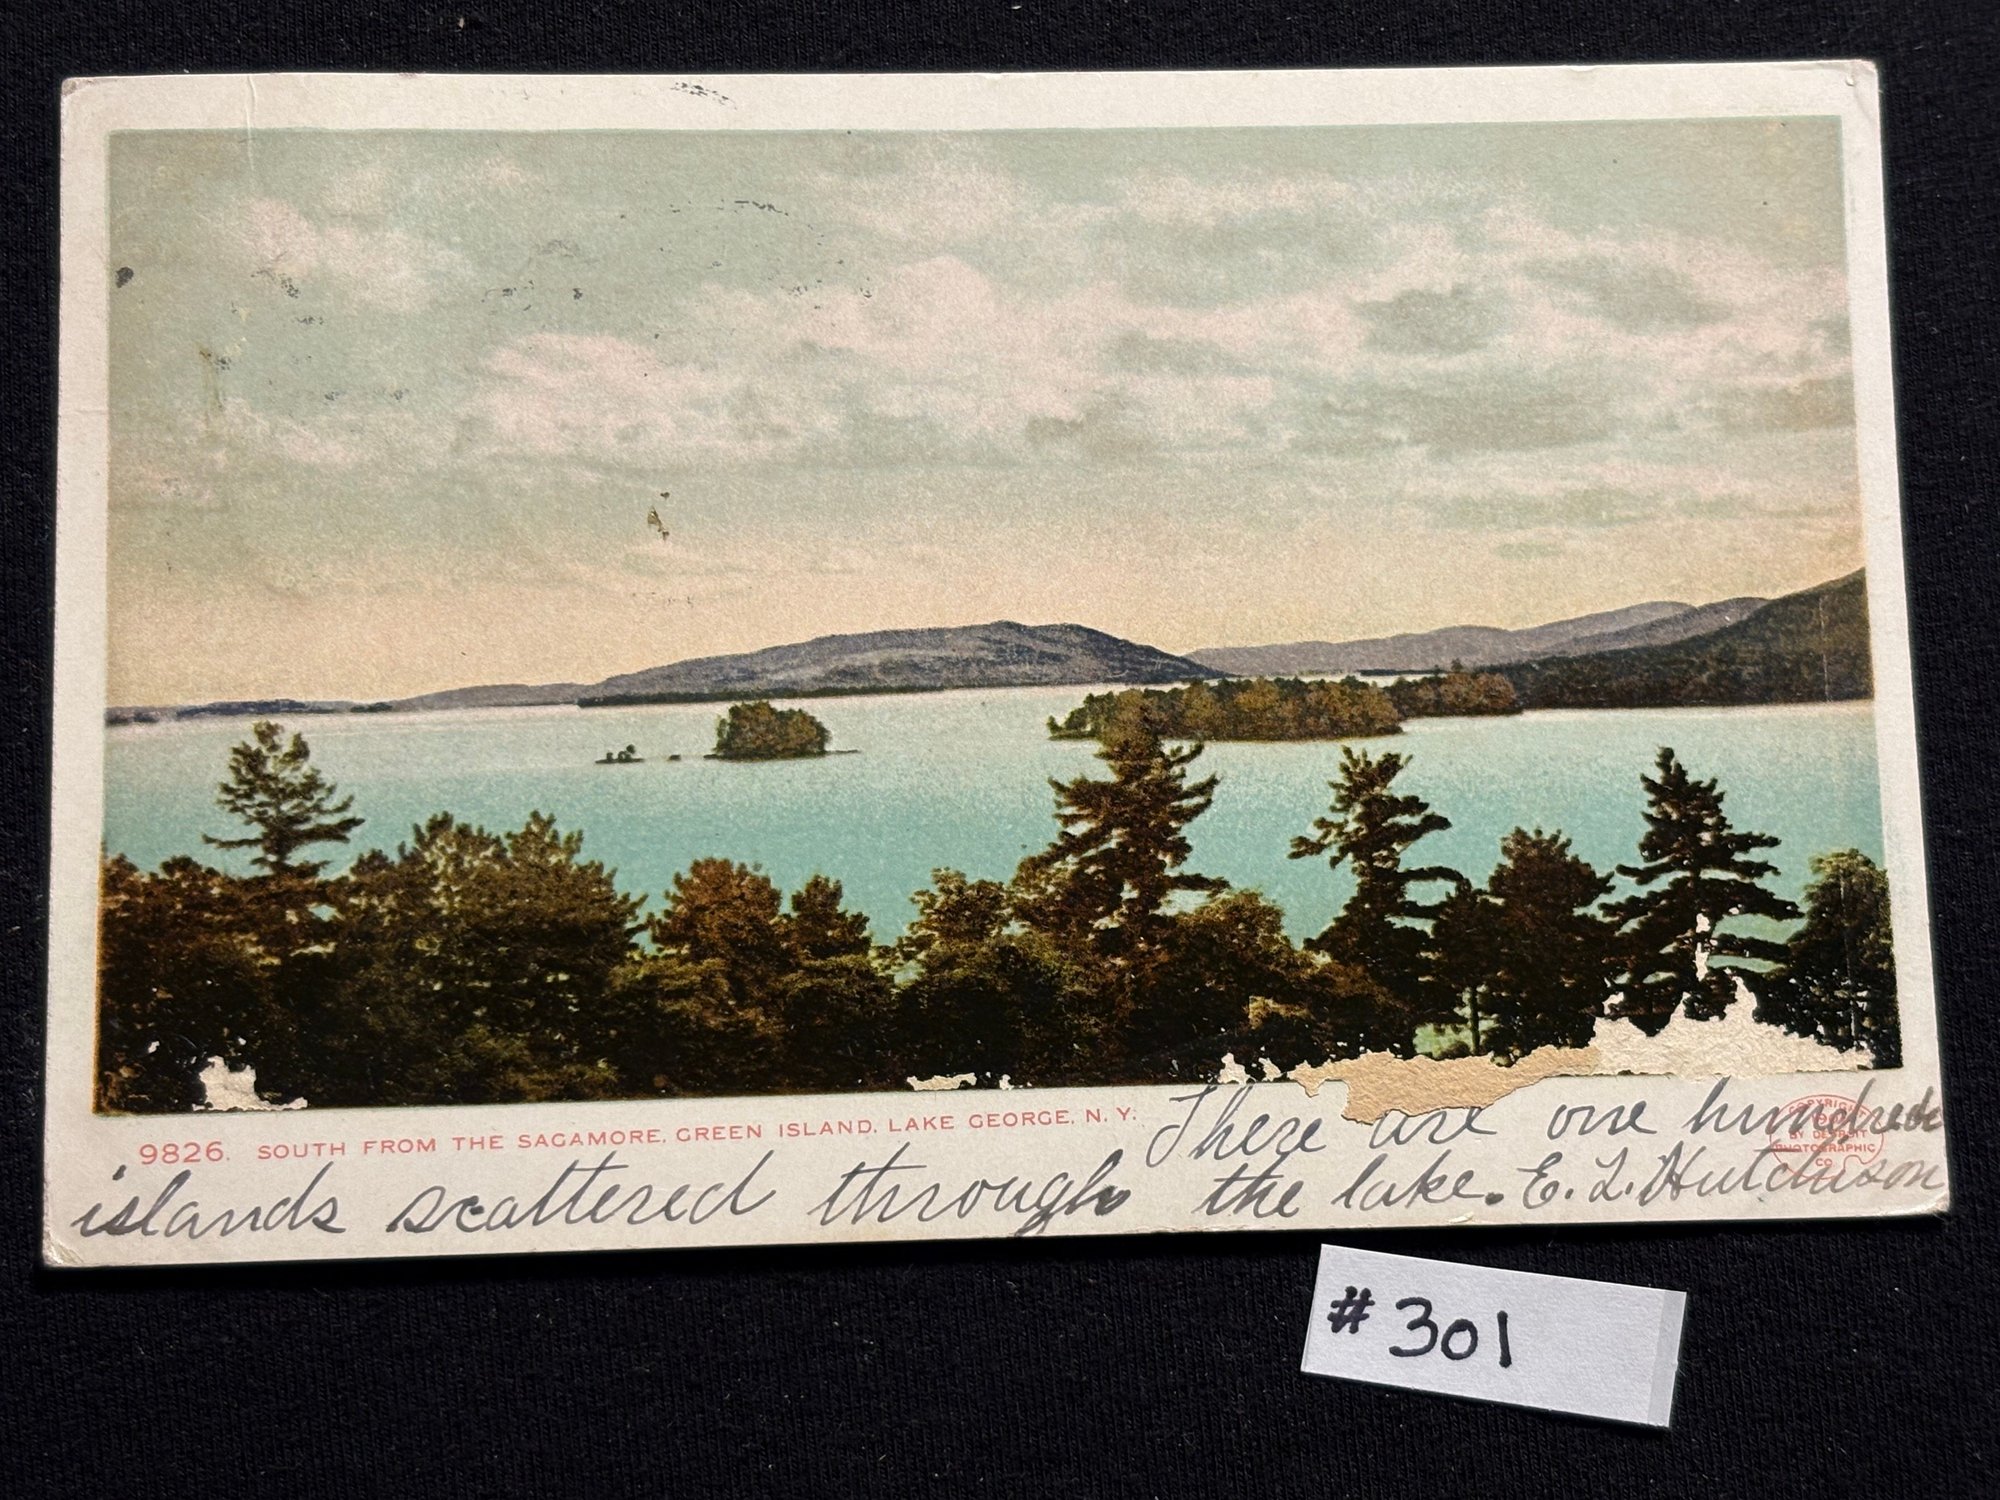 9826. SOUTH FROM THE SAGAMORE, GREEN ISLAND, LAKE GEORGE, N. Y.
There are one hundred
islands scattered through the lake. E. L. Hutchison
COPYRIGHT
BY DETROIT
PHOTOGRAPHIC
CO.
#301